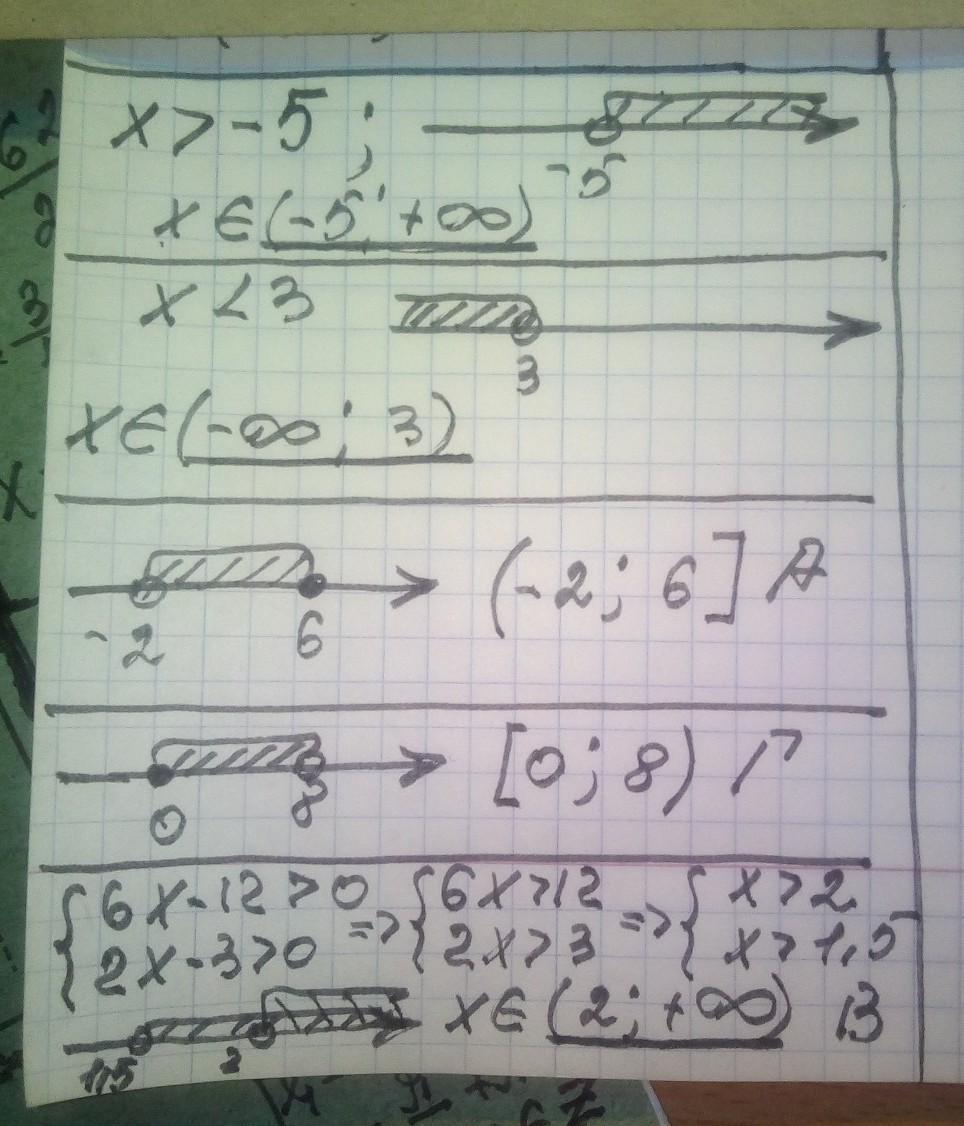 x > -5 ;
-5
x ∈ (-5; +∞)
x < 3
3
x ∈ (-∞; 3)
-2 6 (-2; 6] А
0 8 [0; 8) Г
{6x-12>0 => {6x>12 => {x>2
{2x-3>0 {2x>3 {x>1,5
1,5 2 x ∈ (2; +∞) В